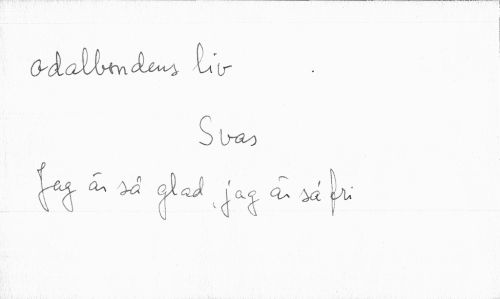 odalbondens liv
Svas
Jag är så glad, jag är så fri